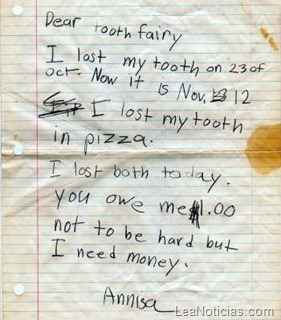 Dear tooth fairy
I lost my tooth on 23 of
oct. Now it is Nov. 12
I lost my tooth
in pizza.
I lost both today.
you owe me $1.00
not to be hard but
I need money.
Annisa
LeaNoticias.com